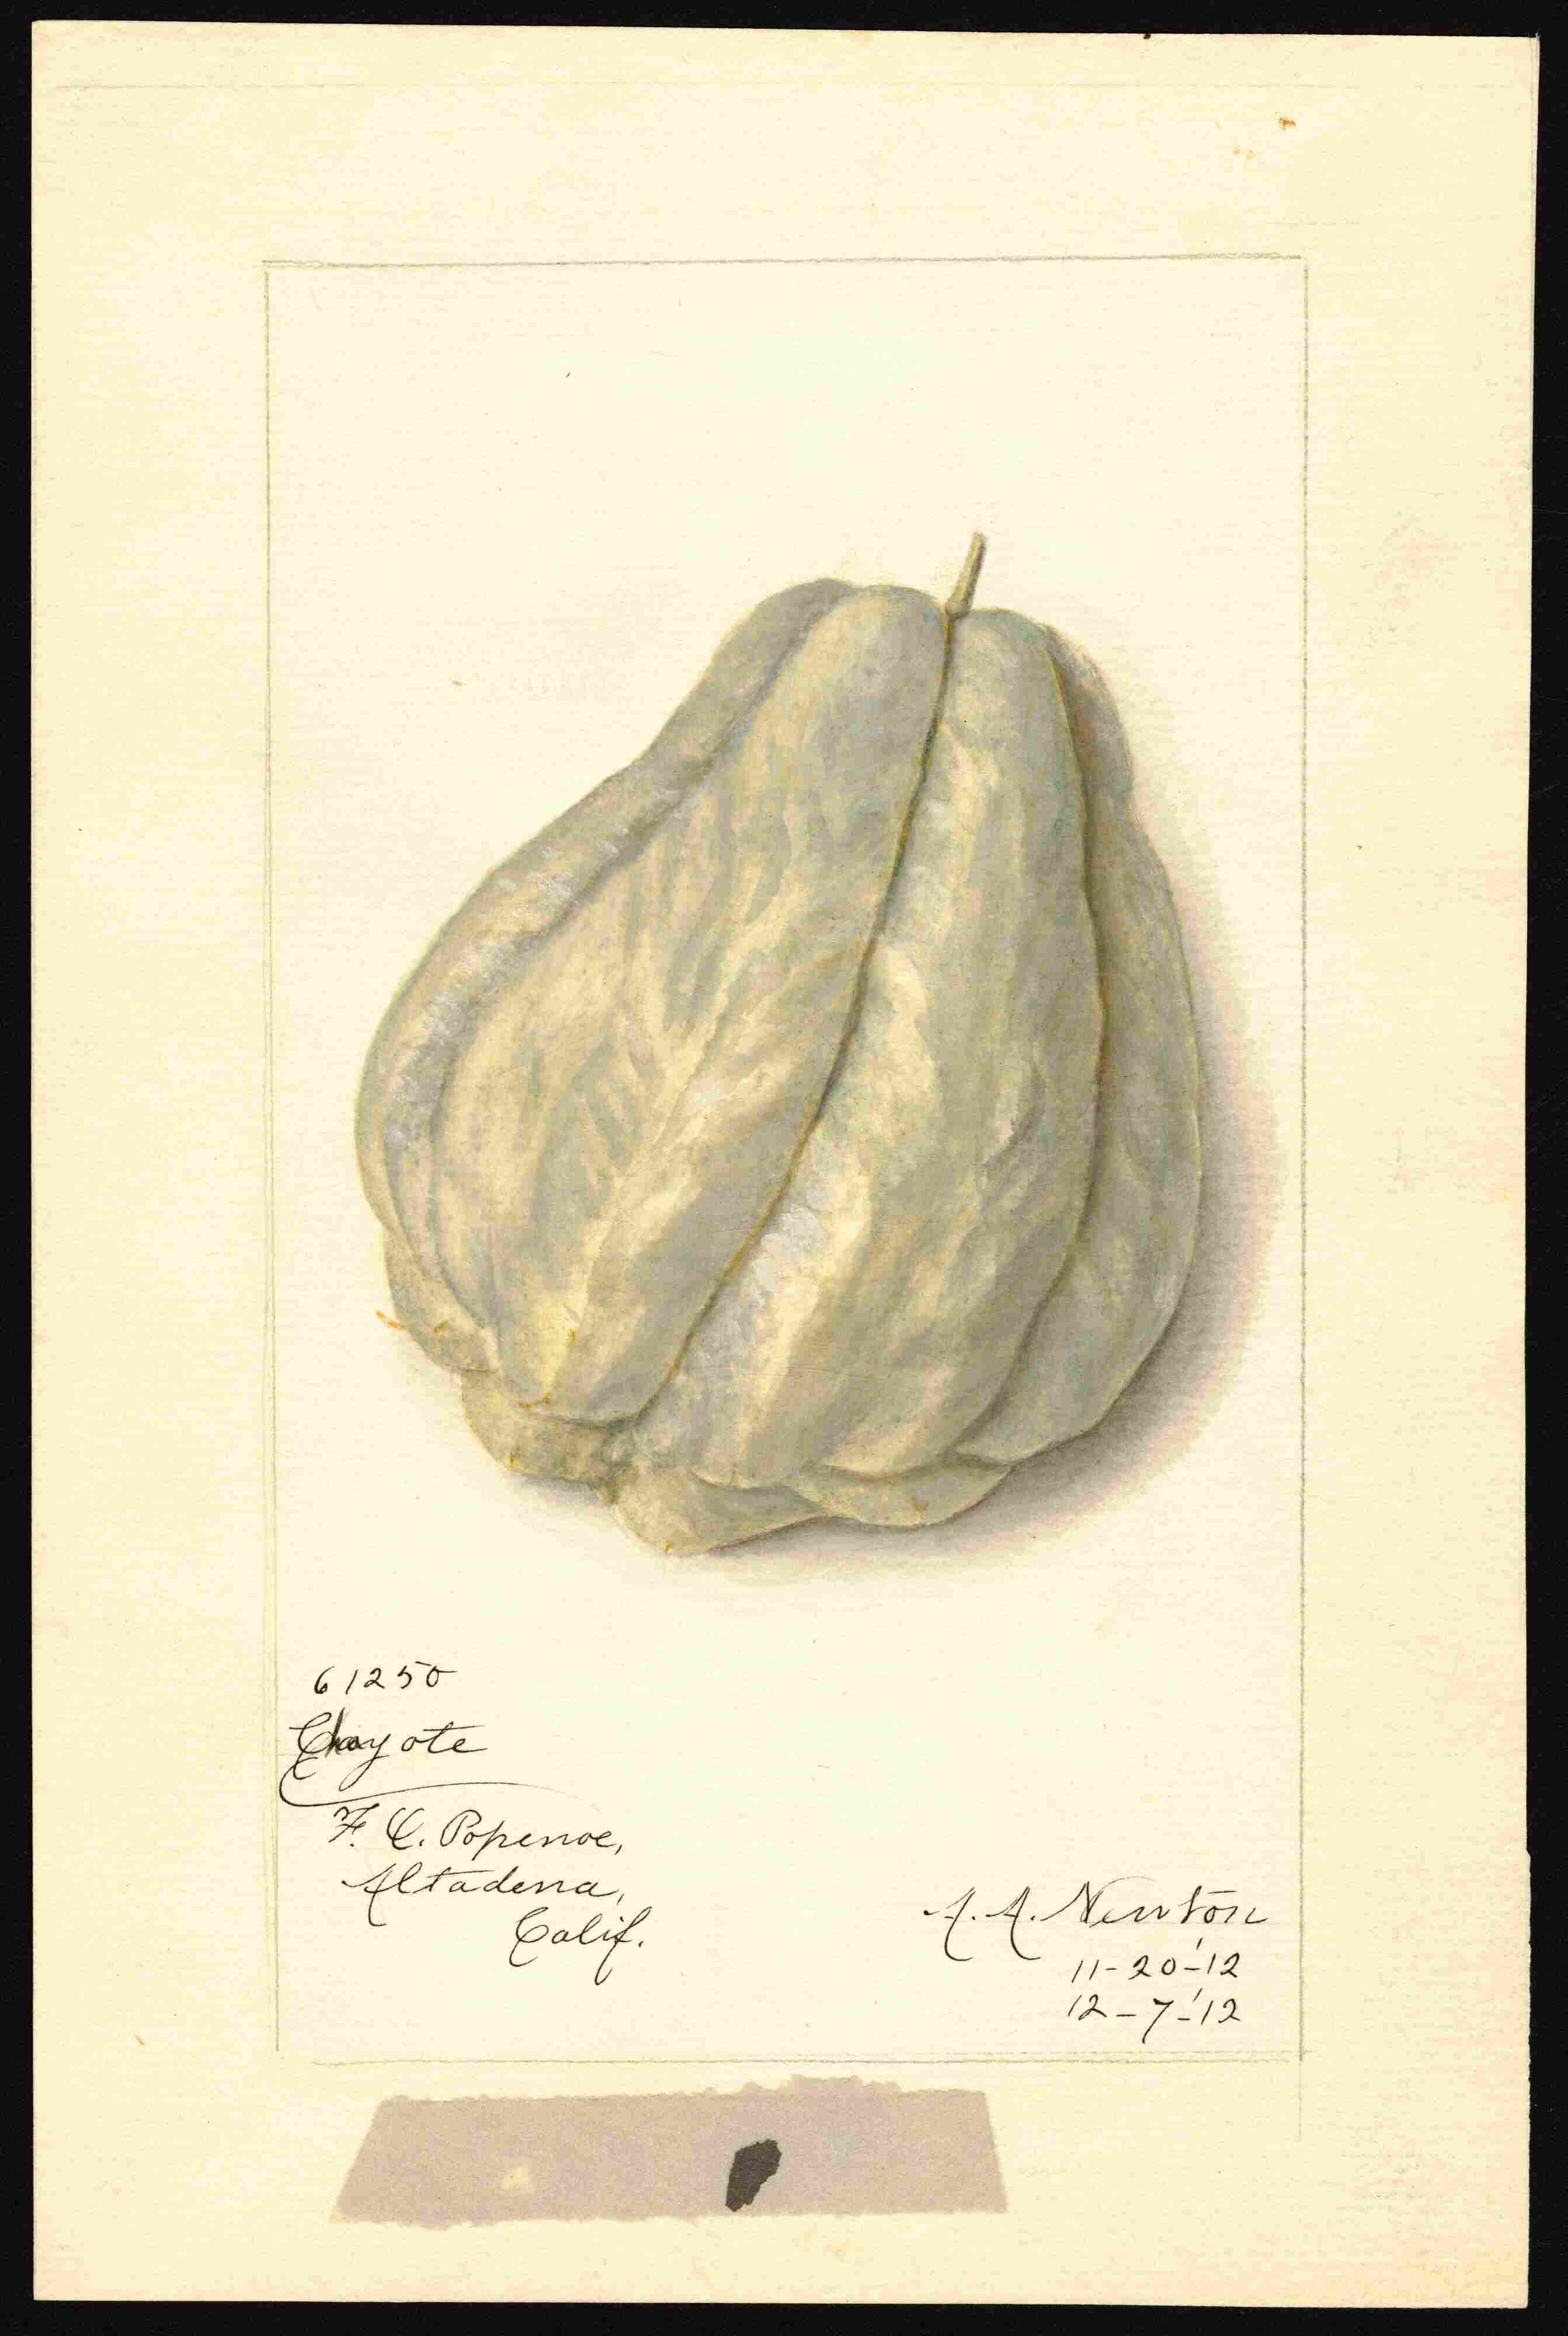 61250
Chayote
F. O. Popenoe,
Altadena,
Calif.
A. A. Newton
11-20-'12
12-7-'12